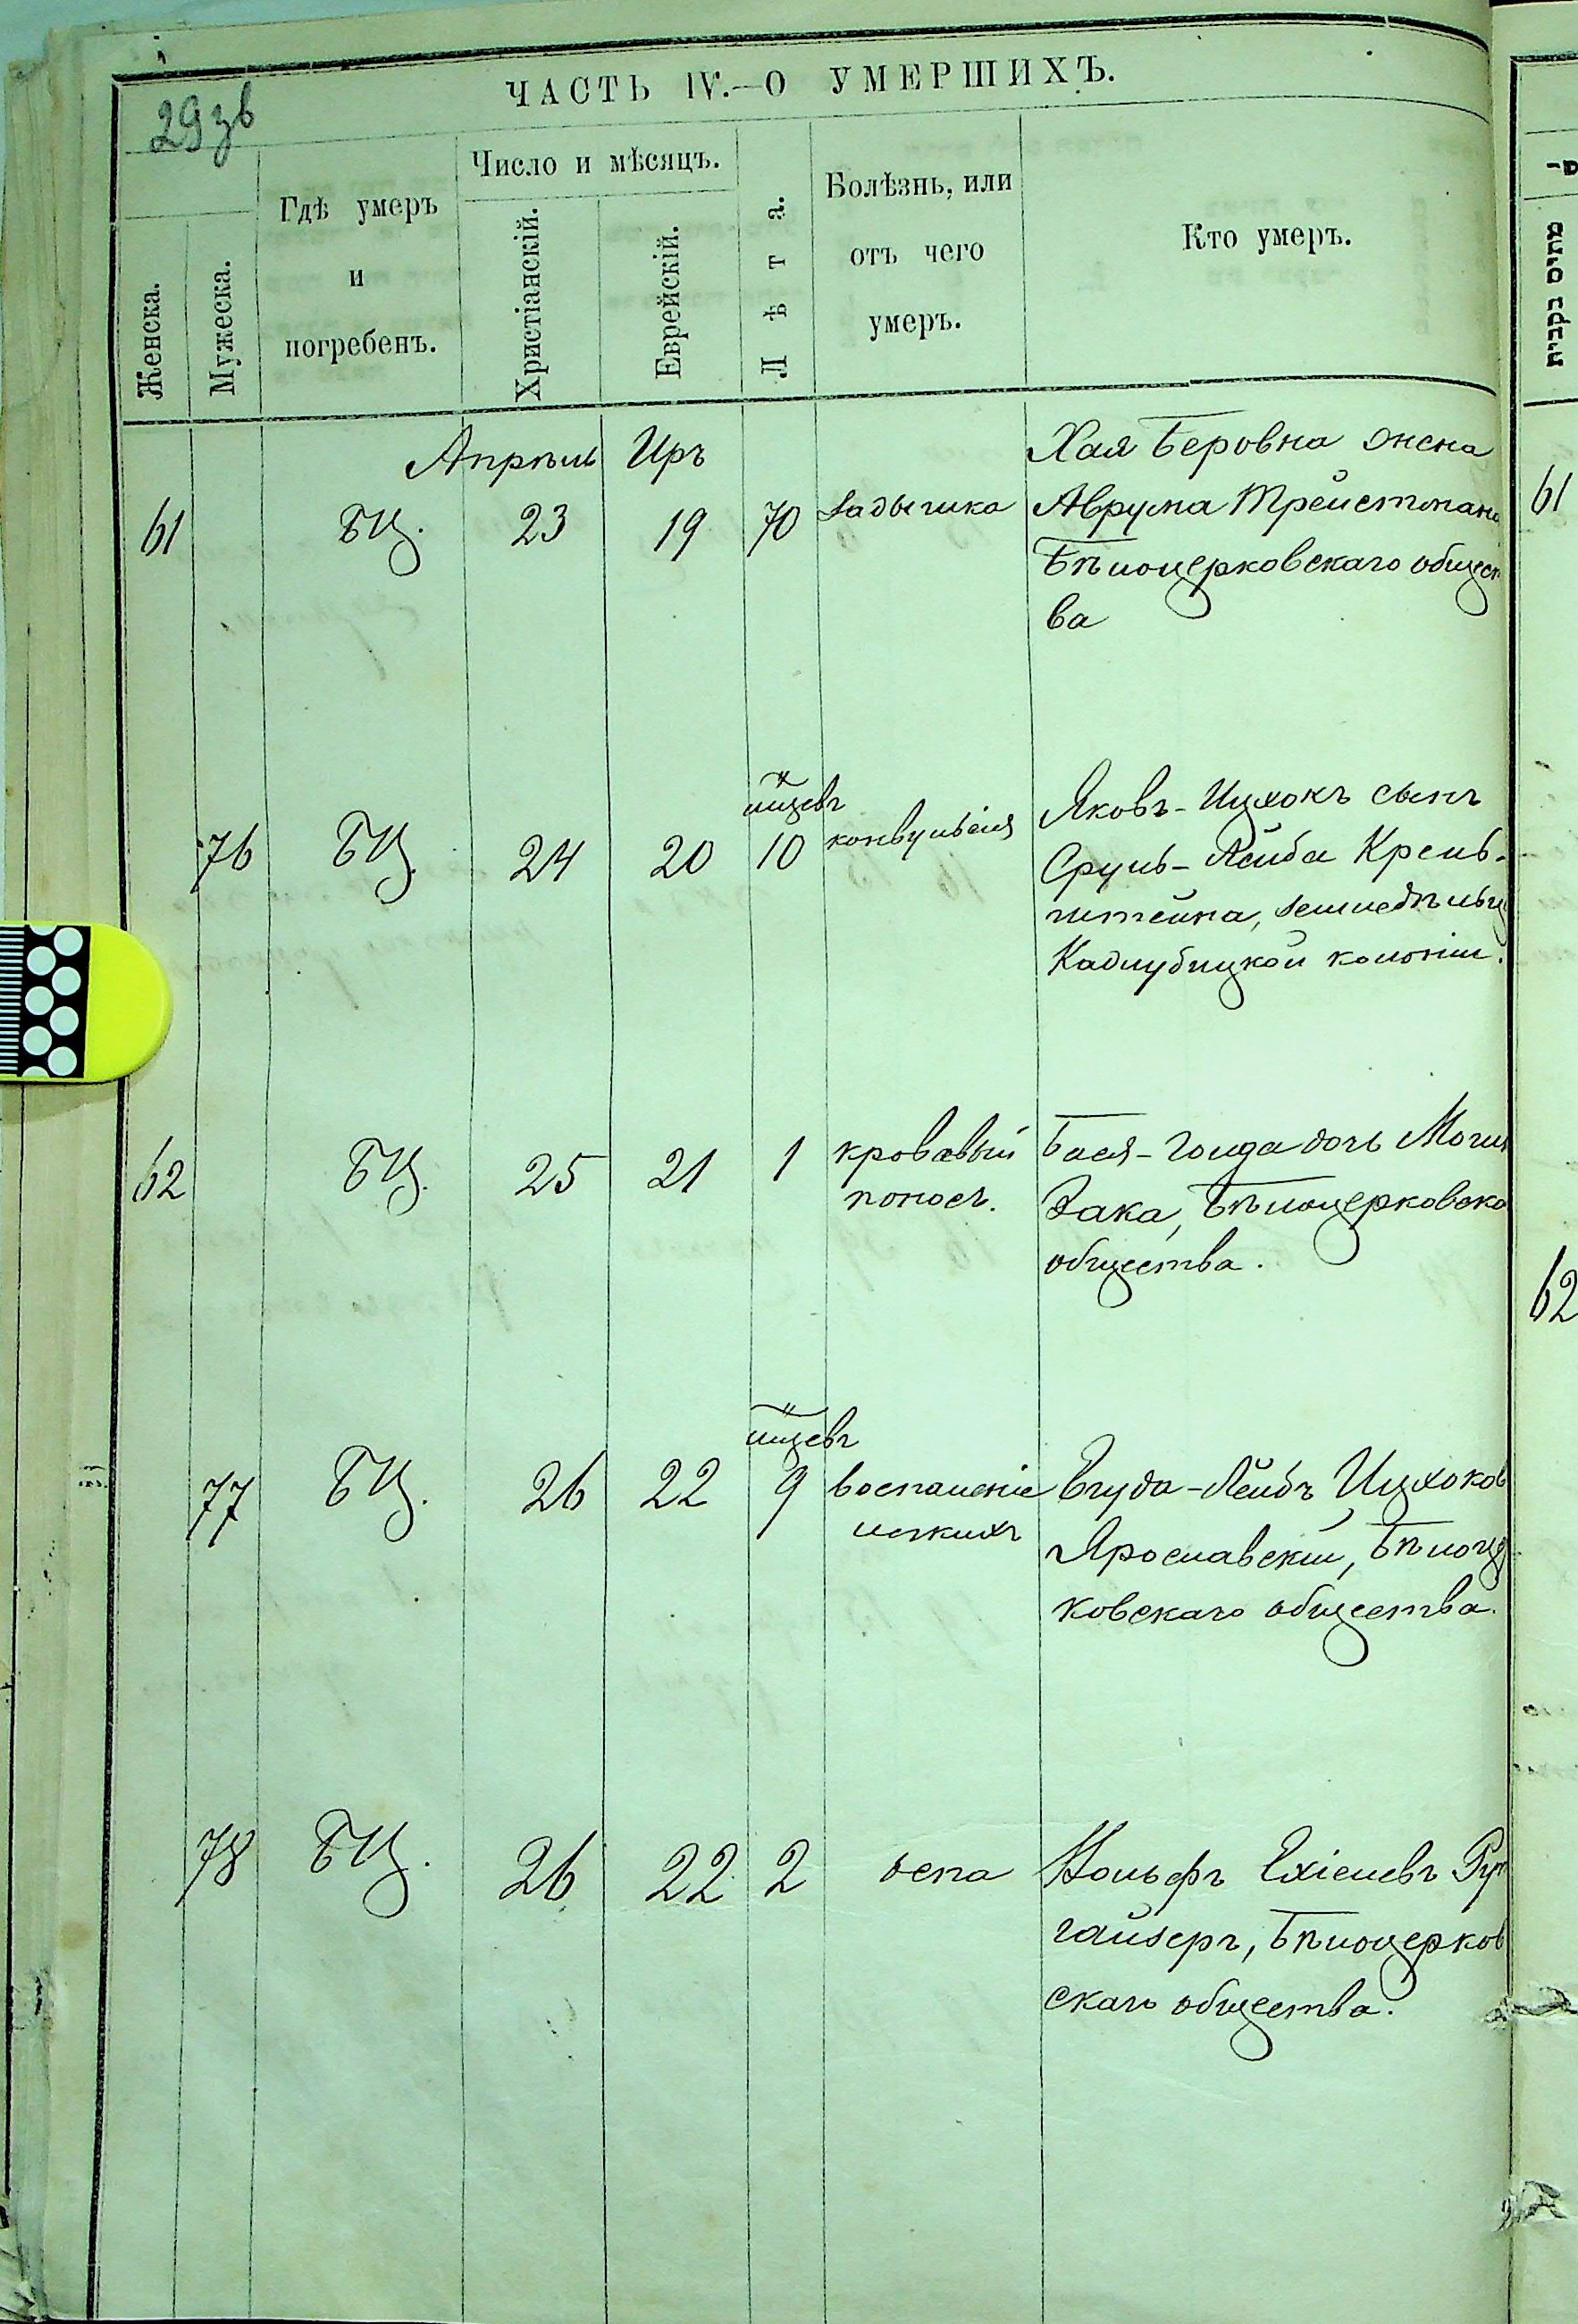 ЧАСТЬ IV.—О УМЕРШИХЪ.
29зв
Женска.
Мужеска.
Гдѣ умеръ
и
погребенъ.
Число и мѣсяцъ.
Христіанскій.
Еврейскій.
Лѣта.
Болѣзнь, или
отъ чего
умеръ.
Кто умеръ.
Апрѣль Иръ
61 БЦ. 23 19 70 задышка
Хая Беровна жена
Аврума
Бѣлоцерковскаго общест
ва
76 БЦ. 24 20 мѣсяцевъ 10 конвульсія
Яковъ-Ицхокъ сынъ
Сруль-Лейба Крель-
штейна, земледѣльц
Кадлубицкой колоніи.
62 БЦ. 25 21 1 кровавый
поносъ.
Бася-Голда дочь
Зака, Бѣлоцерковска
общества.
77 БЦ. 26 22 мѣсяцевъ 9 воспаленіе
легкихъ
Егуда-Лейбъ Ицхоков
Ярославскій, Бѣлоце
ковскаго общества.
78 БЦ. 26 22 2 оспа
Вольфъ Ехіелевъ
гайзеръ, Бѣлоцерков
скаго общества.
מתים
61
62